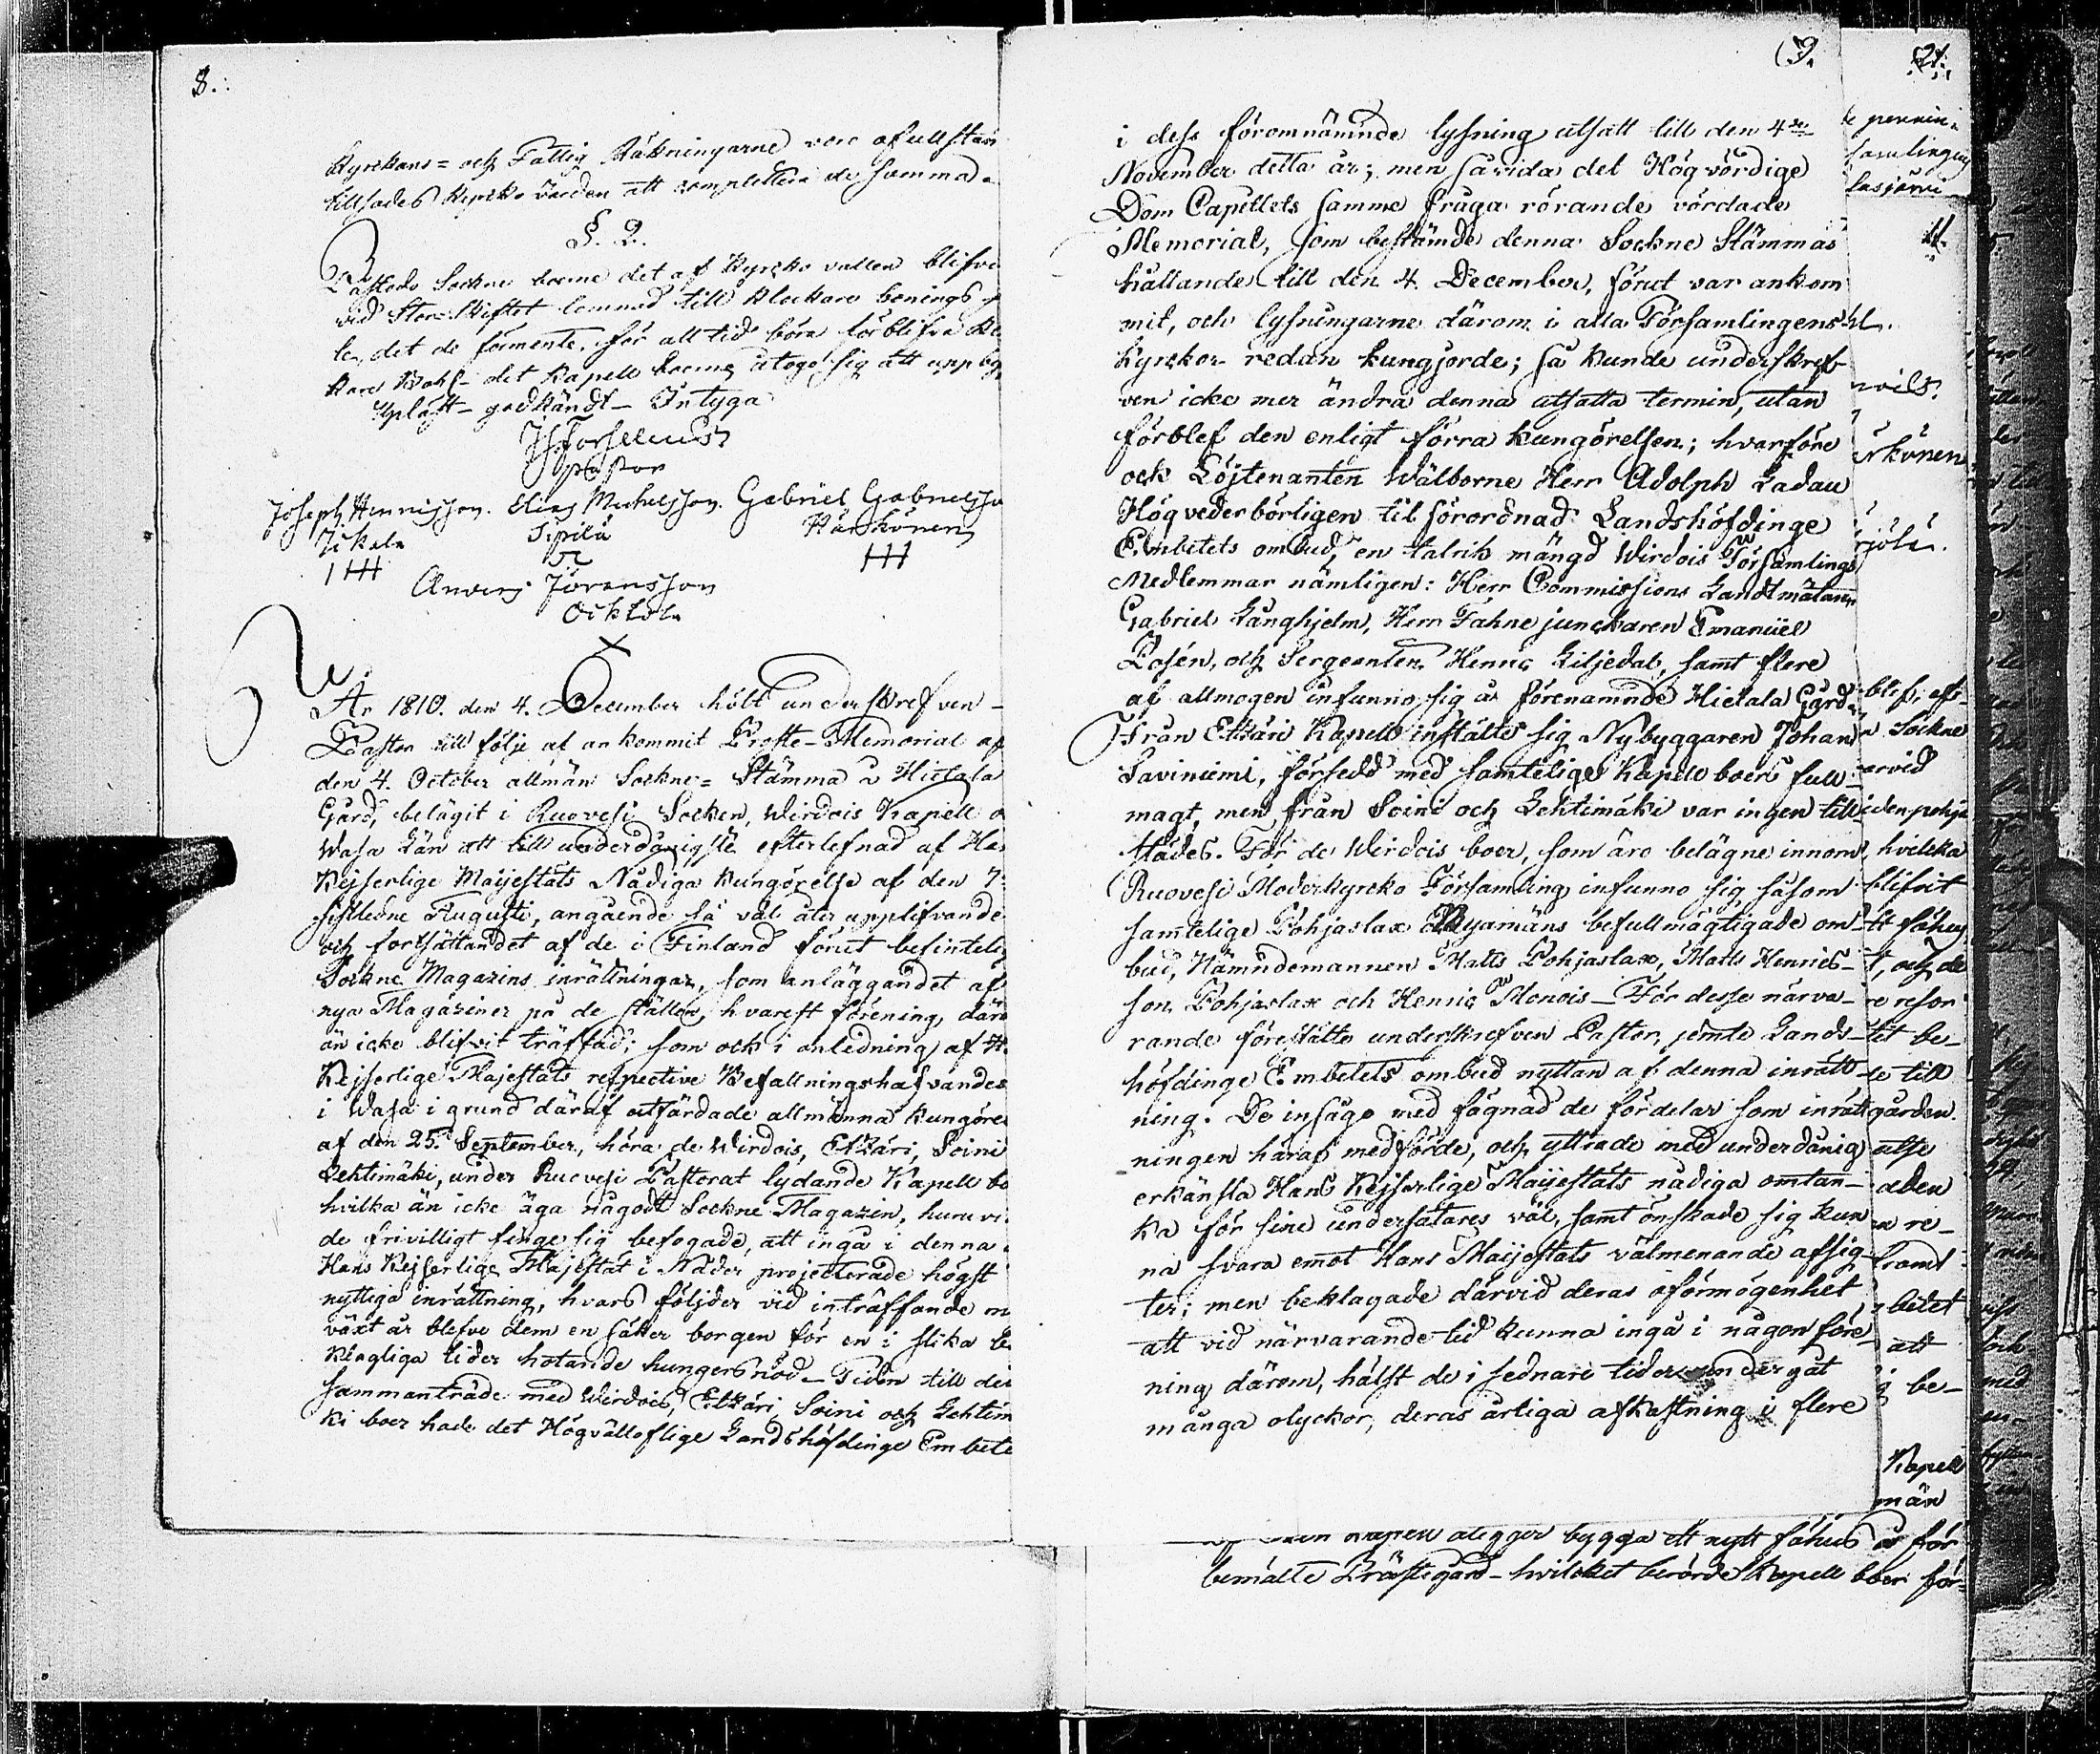 8.
Kyrckans= och Fattig Räkningarne vore ofullstän
tillsades Kyrcko värden att complettera de samma.
§. 2.
Påstodo Sockne boerne det af Kyrcko vallen blifvi
vid Stor Skiftet lemnad till Klockare benings
le, det de förmente, för all tid böra förblifva Kl
kare Bohl - det Kapell boerne åtogo sig att uppbg
plått - godkändt - Intyga
Pastor
Joseph Hennigsson. Elias Michelsson. Gabriel Gabrielsso
Jikala Sipilä Härkönen
Anders Göransson
Ockola
År 1810. den 4. December hölt underskrefven -
Pastor till följe af ankommit Proste-Memorial af
den 4. October allmän Sockne= Stämma å Hietala
Gård, belägit i Ruovesi Socken, Wirdois Kapell o
Wasa Län att till underdånigste efterlefnad af Ha
Kejserlige Maijestäts Nådiga Kungörelse af den 7
sistledne Augusti, angående så väl åter upplifvande
och fortsättandet af de i Finland förut befinteli
Sockne Magazins inrättningar, som anläggandet af
nya Magaziner på de ställen, hvarest förening, där
än icke blifvit träffad; som ock i anledning af H.
Kejserlige Majestäts respective Befallningshafvandes
i Wasa i grund däraf utfärdade allmänna Kungöre
af den 25. September, höra de Wirdois, Etzäri, Soini
Lehtimäki, under Ruovesi Pastorat lydande Kapell bo
hvilka än icke äga något Sockne Magazin, huru vi
de frivilligt finge sig befogade, att ingå i denna
Hans Kejserlige Majestät i Nåder projecterade högst
nyttiga inrättning, hvars följder vid inträffande m
växt år blefve dem en säker borgen för en i slika be
klagliga tider hotande hungersnöd - Tiden till det
sammanträde med Wirdois, Etzäri Soini och Lehtim
ki boer hade det Högvälloflige Landshöfdinge Embete
9.
i dess föromnämnde lysning utsatt till den 4de
November detta år; men såvida det Högvördige
Dom Capitlets samme fråga rörande vördade
Memorial, som bestämde denna Sockne Stämmas
hållande till den 4. December, förut var ankom
mit, och lysningarne därom i alla Församlingens
Kyrckor redan kungjorde; så kunde underskref
ven icke mer ändra denna utsatta termin, utan
förblef den enligt förra kungörelsen; hvarföre
ock Löjtenanten Wälborne Herr Adolph Ladau
Högvederbörligen til förordnad Landshöfdinge
Embetets ombud, en talrik mängd Wirdois Församlings
Medlemmar nämligen: Herr Commissions Landtmätaren
Gabriel Långhjelm, Herr Fahnejunckaren Emanuel
Posén, och Sergeanten Henric Liljedal, samt flere
af allmogen infunno sig å förenämnde Hietala Gård.
Från Etzäri Kapell inställte sig Nybyggaren Johan
Saviniemi, försedd med samtelige Kapell boers full
magt, men från Soini och Lehtimäki var ingen till
städes. För de Wirdois boer, som äro belägne innom
Ruovesi Moderkyrcko Församling infunno sig såsom
samtelige Pohjaslax Byamäns befullmägtigade om
bud, Nämndemannen Matts Pohjaslax, Matts Henrics-
son Pohjaslax och Henric Monois - För desse närva-
rande föreställte underskrefven Pastor, jemte Lands-
höfdinge Embetets ombud nyttan af denna inrätt
ning. De insågo med fägnad de fördelar som inrätt
ningen häraf medförde, och yttrade med underdånig
erkänsla Hans Kejserlige Maijestäts nådiga omtan-
ka för sine undersåtares väl, samt önskade sig kun
na svara emot Hans Maijestäts välmenande afsig
ter; men beklagade därvid deras oförmögenhet
att vid närvarande tid kunna ingå i någon före
ning därom, hälst de i sednare tider undergåt
många olyckor, deras årliga afkastning i flere
21.
samlingens
11.
blef, eft-
n Sockne
ervid
hvilcka
blifvit
tt fähus
t, och de
tit be-
te till
gården.
aden
samt
betet
att
be-
Kapell
män
bygga ett nytt fähus å för
bemälte Prästegård - hvilcket berörde Kapell boer för-